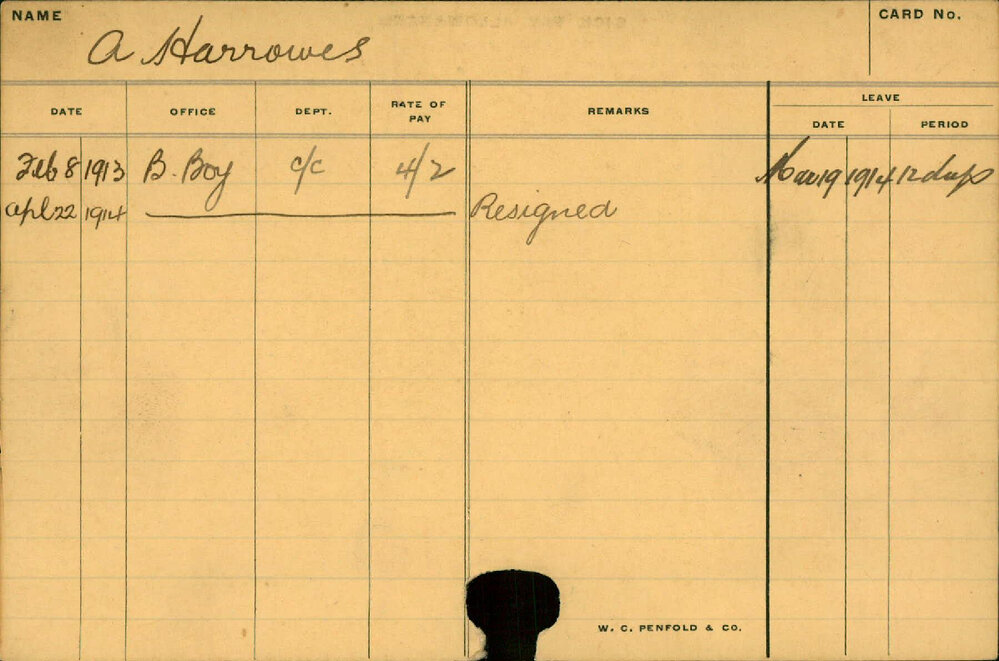 NAME
A Harrowes
CARD No.
DATE OFFICE DEPT. RATE OF PAY REMARKS LEAVE
DATE PERIOD
Feb 8 1913 B. Boy c/c 4/2 Mar 19 1914 12 days
Apl 22 1914 Resigned
W. C. PENFOLD & CO.